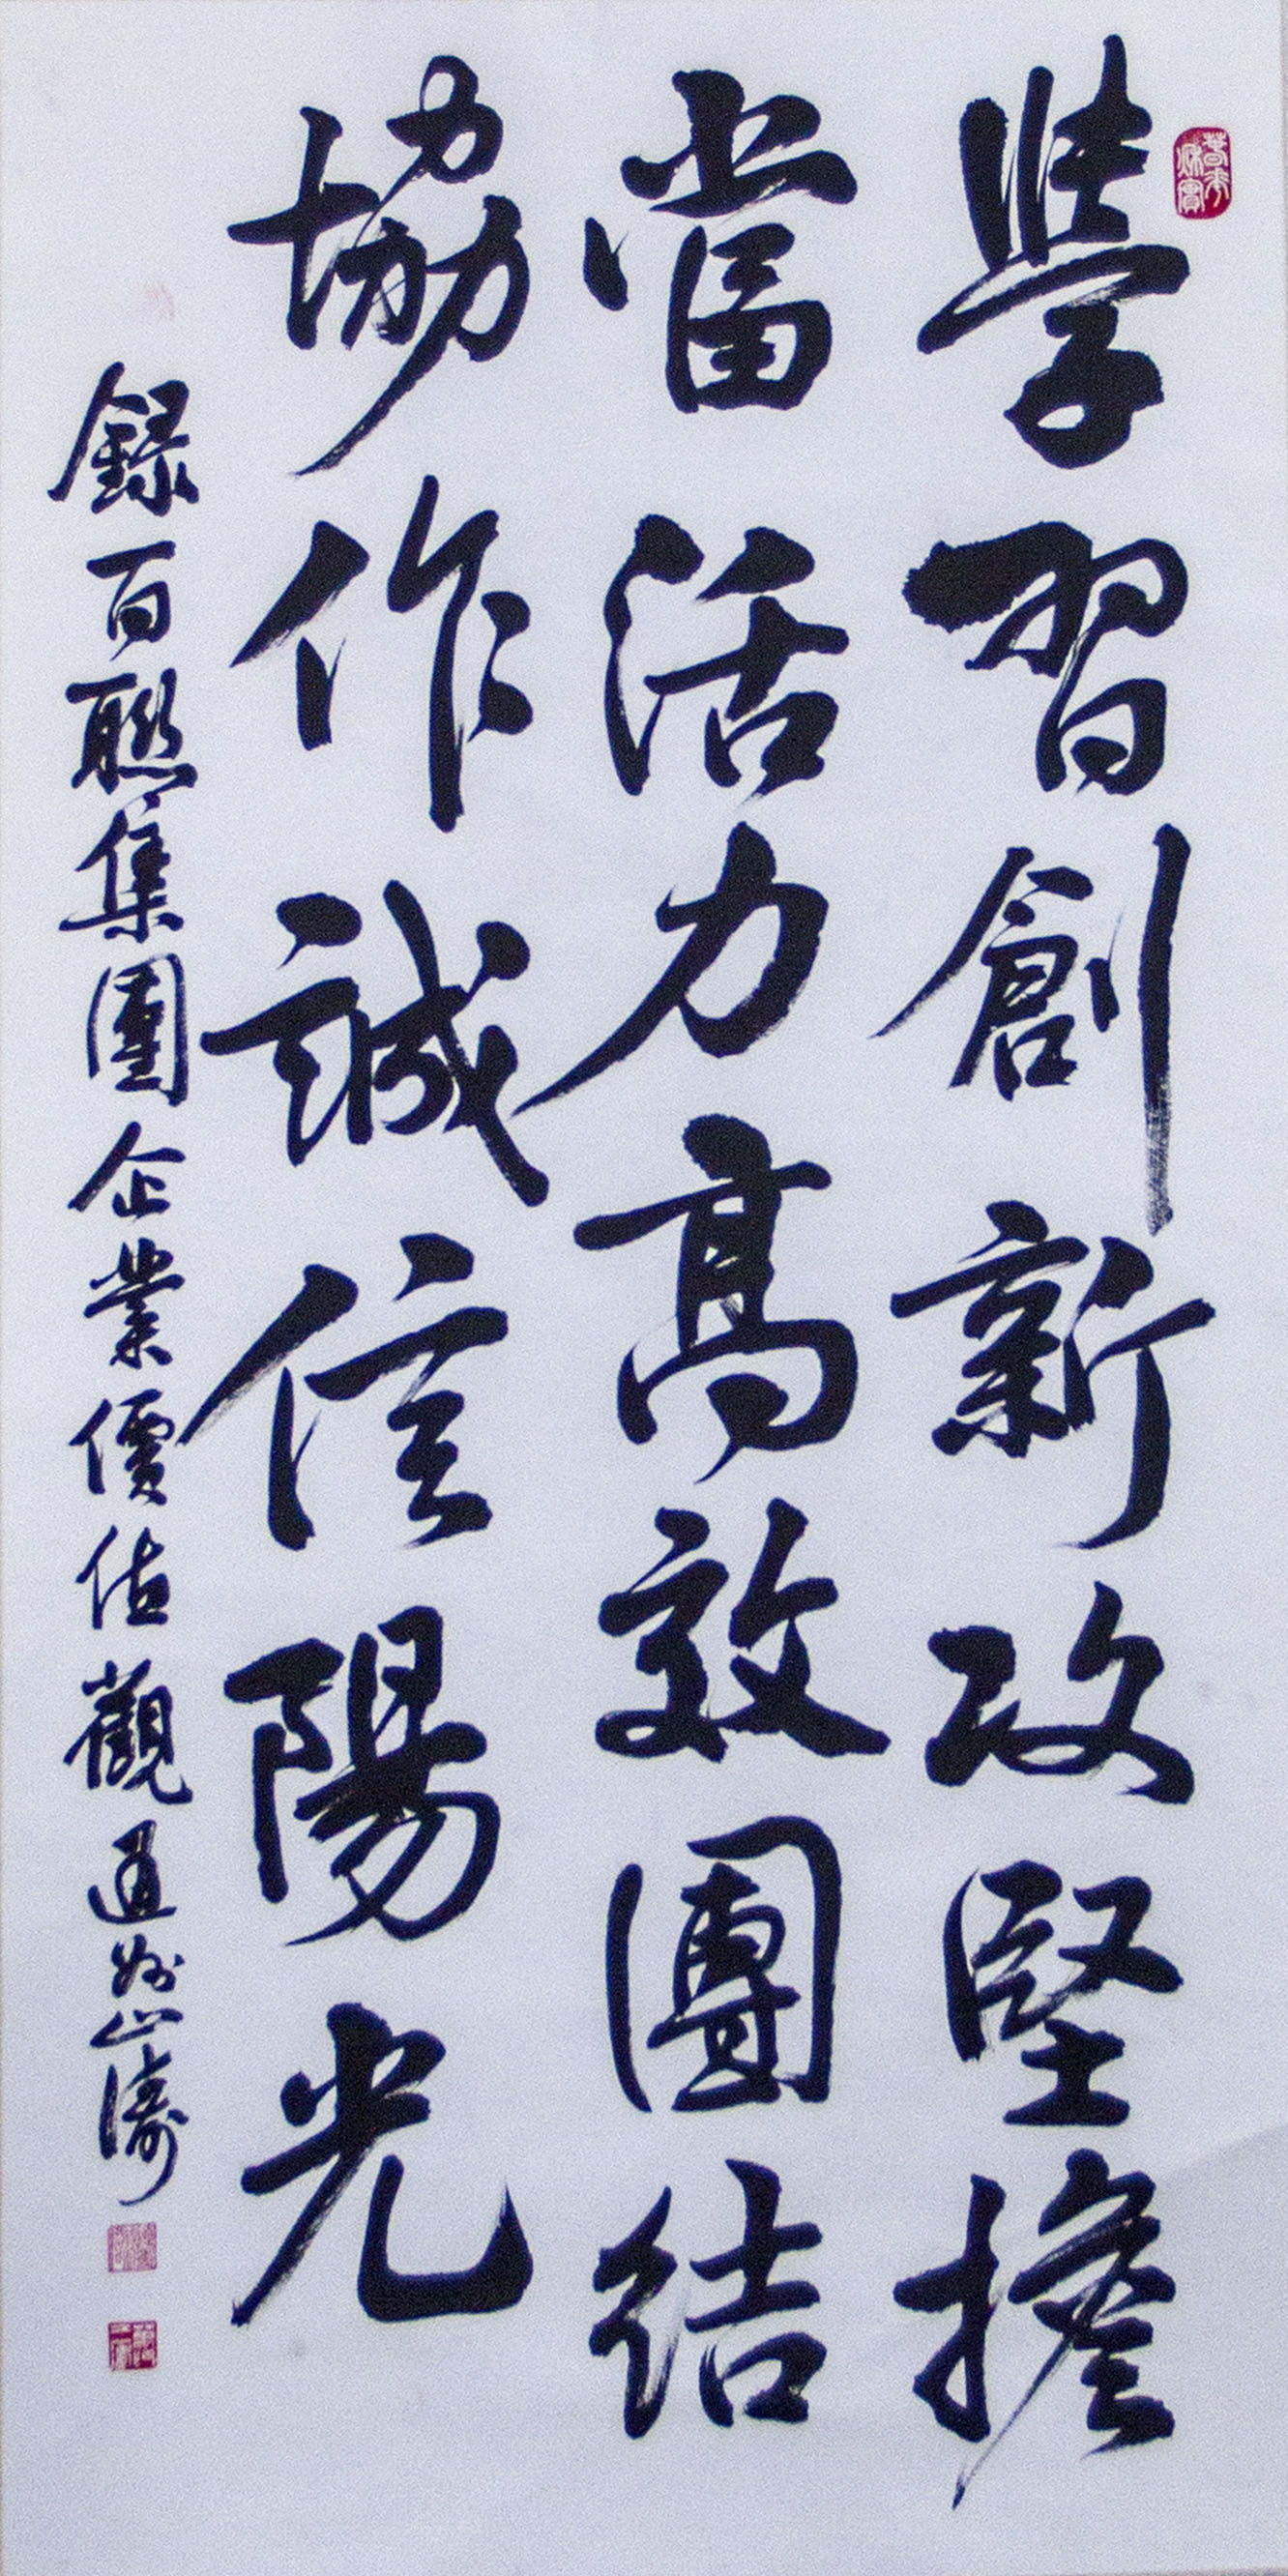 學習創新攻堅擔
當活力高效團結
協作誠信陽光
錄百聯集團企業價值觀通州山濤
春華秋實